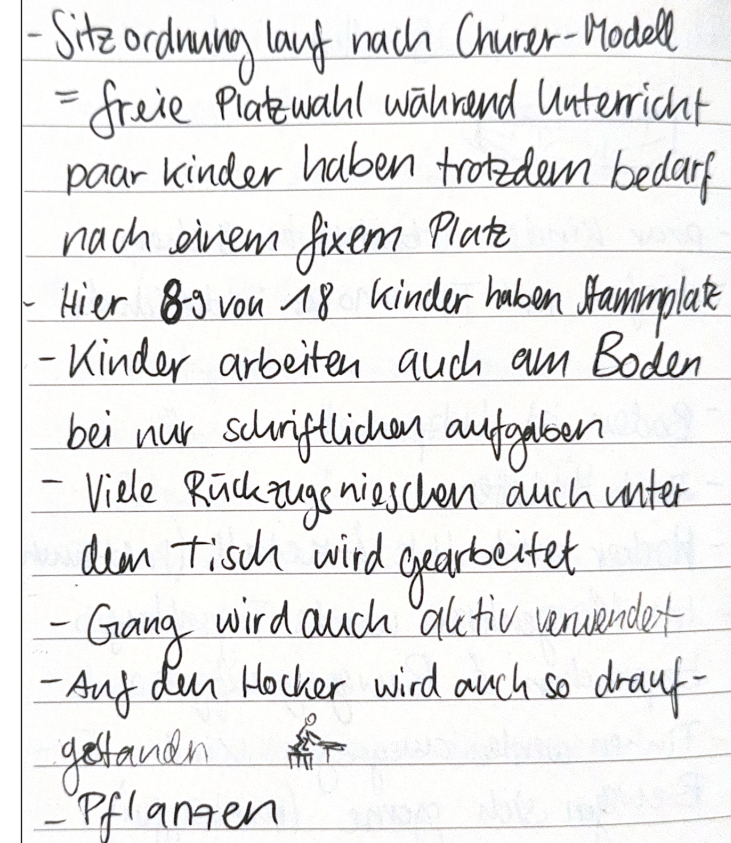 - Sitzordnung lauf nach Churer-Modell
= freie Platzwahl während Unterricht
paar kinder haben trotzdem bedarf
nach einem fixem Platz
- Hier 8-9 von 18 Kinder haben Stammplatz
- Kinder arbeiten auch am Boden
bei nur schriftlichen aufgaben
- Viele Rückzugsnieschen auch unter
dem Tisch wird gearbeitet
- Gang wird auch aktiv verwendet
- Auf den Hocker wird auch so drauf-
gestandn
- Pflanzen